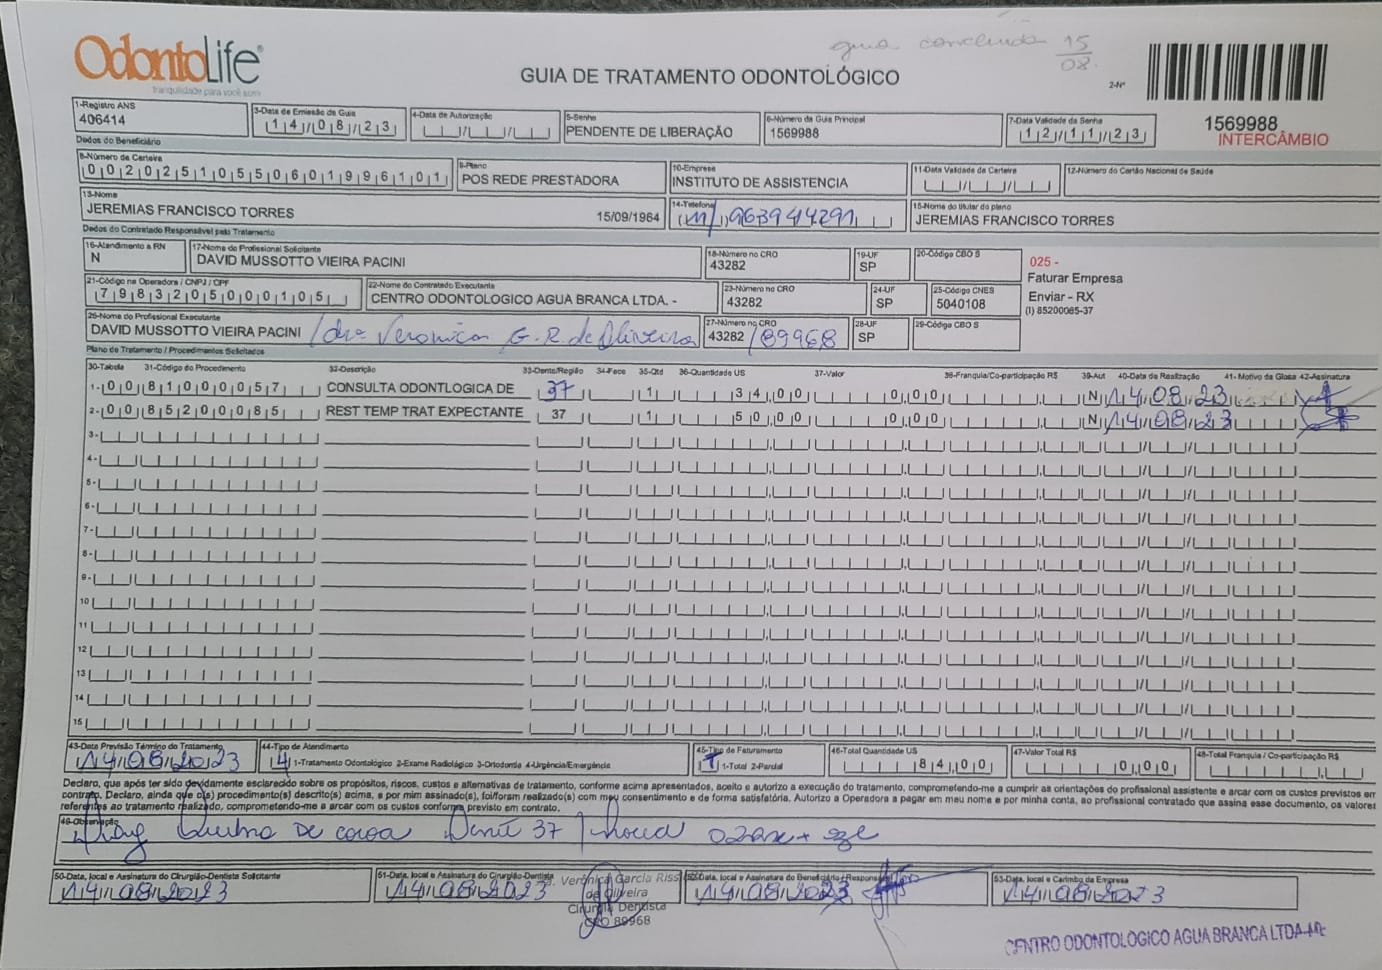 guia concluida 15/08.
OdontoLife®
tranquilidade para você sorrir
GUIA DE TRATAMENTO ODONTOLÓGICO
2-Nº
1569988
INTERCÂMBIO
1-Registro ANS
406414
3-Data de Emissão da Guia
14/08/23
4-Data de Autorização
5-Senha
PENDENTE DE LIBERAÇÃO
6-Número da Guia Principal
1569988
7-Data Validade da Senha
12/11/23
Dados do Beneficiário
8-Número da Carteira
00202510550601996101
9-Plano
POS REDE PRESTADORA
10-Empresa
INSTITUTO DE ASSISTENCIA
11-Data Validade da Carteira
12-Número do Cartão Nacional de Saúde
13-Nome
JEREMIAS FRANCISCO TORRES 15/09/1984
14-Telefone
(11) 963944291
15-Nome do titular do plano
JEREMIAS FRANCISCO TORRES
Dados do Contratado Responsável pelo Tratamento
16-Atendimento a RN
N
17-Nome do Profissional Solicitante
DAVID MUSSOTTO VIEIRA PACINI
18-Número no CRO
43282
19-UF
SP
20-Código CBO S
025 -
Faturar Empresa
Enviar - RX
(I) 85200085-37
21-Código na Operadora / CNPJ / CPF
79832050000105
22-Nome do Contratado Executante
CENTRO ODONTOLOGICO AGUA BRANCA LTDA. -
23-Número no CRO
43282
24-UF
SP
25-Código CNES
5040108
26-Nome do Profissional Executante
DAVID MUSSOTTO VIEIRA PACINI /dra Veronica G. R. de Oliveira
27-Número no CRO
43282 /89968
28-UF
SP
29-Código CBO S
Plano de Tratamento / Procedimentos Solicitados
30-Tabela 31-Código do Procedimento 32-Descrição 33-Dente/Região 34-Face 35-Qtd 36-Quantidade US 37-Valor 38-Franquia/Co-participação R$ 39-Aut 40-Data de Realização 41- Motivo da Glosa 42-Assinatura
1- 00 81000057 CONSULTA ODONTLOGICA DE 37 1 34,00 0,00 N 14/08/23
2- 00 85200085 REST TEMP TRAT EXPECTANTE 37 1 50,00 0,00 N 14/08/23
3-
4-
5-
6-
7-
8-
9-
10
11
12
13
14
15
43-Data Previsão Término do Tratamento
14/08/2023
44-Tipo de Atendimento
4 1-Tratamento Odontológico 2-Exame Radiológico 3-Ortodontia 4-Urgência/Emergência
45-Tipo de Faturamento
1 1-Total 2-Parcial
46-Total Quantidade US
84,00
47-Valor Total R$
0,00
48-Total Franquia / Co-participação R$
Declaro, que após ter sido devidamente esclarecido sobre os propósitos, riscos, custos e alternativas de tratamento, conforme acima apresentados, aceito e autorizo a execução do tratamento, comprometendo-me a cumprir as orientações do profissional assistente e arcar com os custos previstos em
contrato. Declaro, ainda que o(s) procedimento(s) descrito(s) acima, e por mim assinado(s), foi/foram realizado(s) com meu consentimento e de forma satisfatória. Autorizo a Operadora a pagar em meu nome e por minha conta, ao profissional contratado que assina esse documento, os valores
referentes ao tratamento realizado, comprometendo-me a arcar com os custos conforme previsto em contrato.
49-Observação
Diag Quebra De coroa Dente 37
50-Data, local e Assinatura do Cirurgião-Dentista Solicitante
14/08/2023
51-Data, local e Assinatura do Cirurgião-Dentista
14/08/2023
Verônica Garcia Rissi
de Oliveira
Cirurgiã Dentista
CRO 89968
52-Data, local e Assinatura do Beneficiário / Responsável
14/08/2023
53-Data, local e Carimbo da Empresa
14/08/2023
CENTRO ODONTOLOGICO AGUA BRANCA LTDA-ME